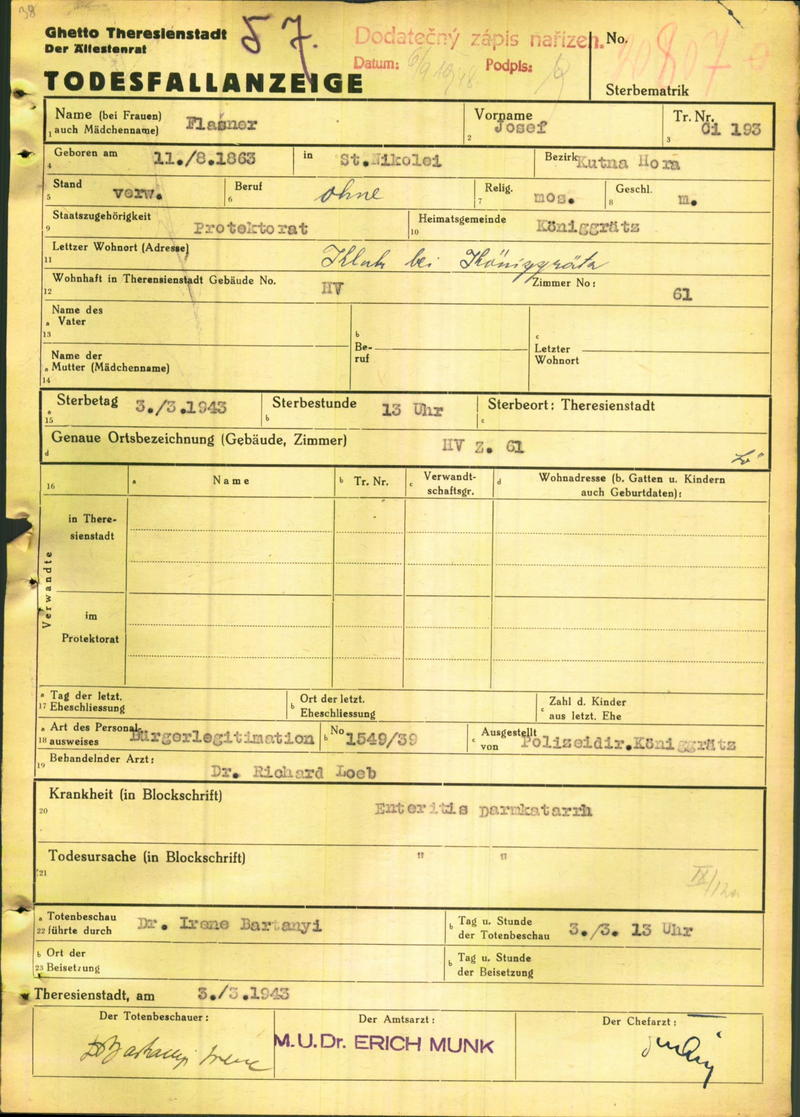 38
Ghetto Theresienstadt
Der Ältestenrat
57.
Dodatečný zápis nařízen.
Datum: Podpis:
No.
TODESFALLANZEIGE
Sterbematrik
Name (bei Frauen) Flašner Vorname Josef Tr. Nr. Ci 193
1 auch Mädchenname) 2 3
Geboren am 11./8.1863 in St.Nikolei Bezirk Kutna Hora
4
Stand verw. Beruf ohne Relig. mos. Geschl. m.
5 6 7 8
Staatszugehörigkeit Protektorat Heimatsgemeinde Königgrätz
9 10
Lettzer Wohnort (Adresse) bei Königgrätz
11
Wohnhaft in Therensienstadt Gebäude No. HV Zimmer No: 61
12
Name des
a Vater
13
b Beruf
c Letzter Wohnort
Name der
a Mutter (Mädchenname)
14
Sterbetag 3./3.1943 Sterbestunde 13 Uhr Sterbeort: Theresienstadt
a 15 b c
Genaue Ortsbezeichnung (Gebäude, Zimmer) HV Z. 61
d
16 a Name b Tr. Nr. c Verwandtschaftsgr. d Wohnadresse (b. Gatten u. Kindern auch Geburtdaten):
Verwandte
in Theresienstadt
im Protektorat
a Tag der letzt. b Ort der letzt. c Zahl d. Kinder
17 Eheschliessung Eheschliessung aus letzt. Ehe
a Art des Personal- Bürgerlegitimation b No 1549/39 c Ausgestellt von Polizeidir.Königgrätz
18 ausweises
19 Behandelnder Arzt: Dr. Richard Loeb
Krankheit (in Blockschrift) Enteritis Darmkatarrh
20
Todesursache (in Blockschrift) " "
21
IX/12a
a Totenbeschau Dr. Irene Bartanyi b Tag u. Stunde 3./3. 13 Uhr
22 führte durch der Totenbeschau
b Ort der b Tag u. Stunde
23 Beisetzung der Beisetzung
Theresienstadt, am 3./3.1943
Der Totenbeschauer: Der Amtsarzt: Der Chefarzt:
M.U.Dr. ERICH MUNK